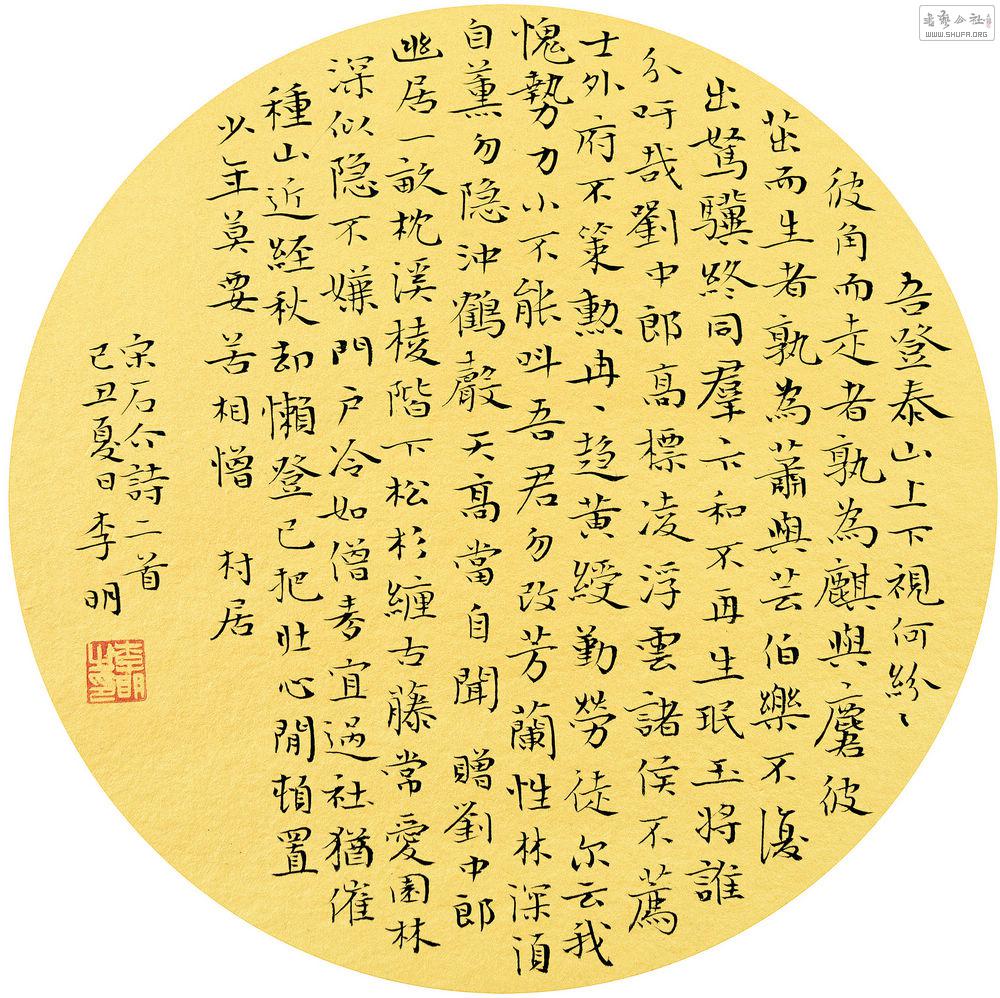 吾登泰山上下視何紛〻
彼角而走者孰為麒與麏彼
茁而生者孰為蕭與芸伯樂不復
出駑驥終同羣卞和不再生珉玉將誰
分吁哉劉中郎高標凌浮雲諸侯不薦
士外府不策勲冉〻趨黄綬勤勞徒尔云我
愧勢力小不能叫吾君勿改芳蘭性林深須
自薰勿隐沖鶴聲天高當自聞 贈劉中郎
幽居一畝枕溪棱階下松杉纏古藤常愛園林
深似隐不嫌門户冷如僧春宜過社猶催
種山近經秋却懶登已把壯心閒頓置
少年莫要苦相憎 村居
宋石介詩二首
己丑夏日李明
WWW.SHUFA.ORG